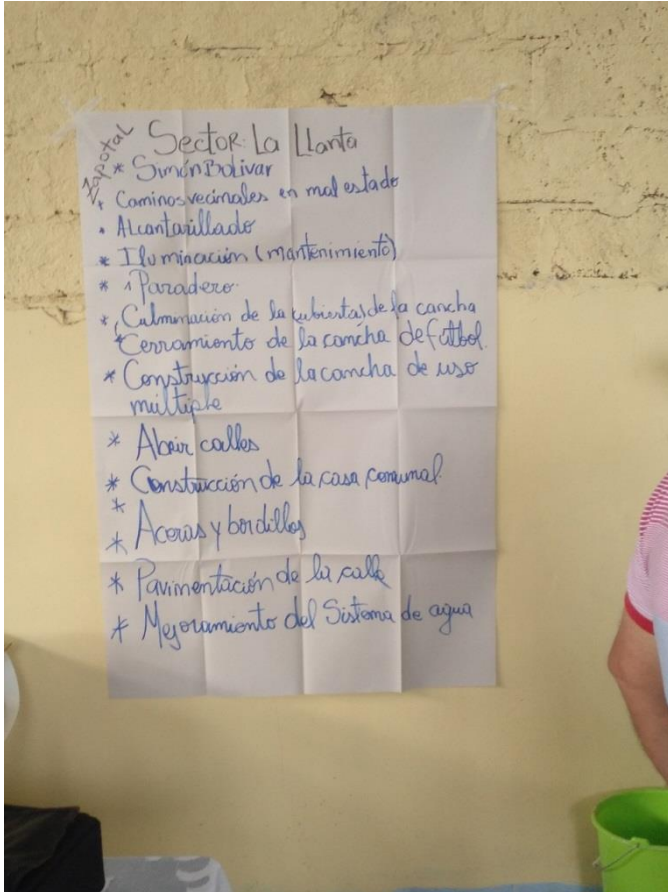 Zapotal
Sector: La Llanta
* Simón Bolivar
* Caminos vecinales en mal estado
* Alcantarillado
* Iluminación (mantenimiento)
* 1 Paradero.
* Culminación de la cubierta de la cancha
* Cerramiento de la cancha de futbol.
* Construcción de la cancha de uso
multiple
* Abrir calles
* Construcción de la casa comunal.
*
* Aceras y bordillos
* Pavimentación de la calle
* Mejoramiento del Sistema de agua